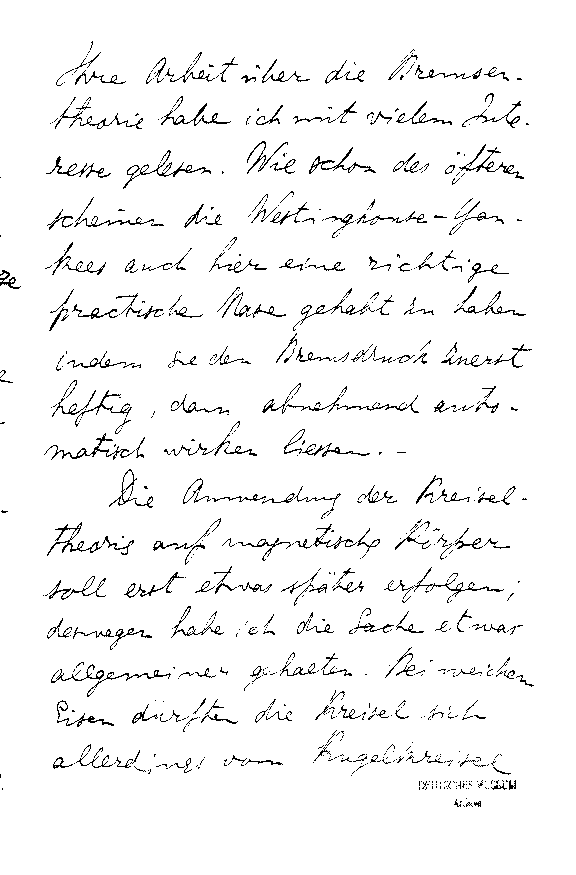 Ihre Arbeit über die Bremsen-
theorie habe ich mit vielem Inte-
resse gelesen. Wie schon des öfteren
scheinen die Westinghouse-Yan-
kees auch hier eine richtige
practische Nase gehabt zu haben
indem sie den Bremsdruck zuerst
heftig, dann abnehmend auto-
matisch wirken liessen. –
Die Anwendung der Kreisel-
theorie auf magnetische Körper
soll erst etwas später erfolgen;
deswegen habe ich die Sache etwas
allgemeiner gehalten. Bei weichem
Eisen dürften die Kreisel sich
allerdings vom Kugelkreisel
DEUTSCHES MUSEUM